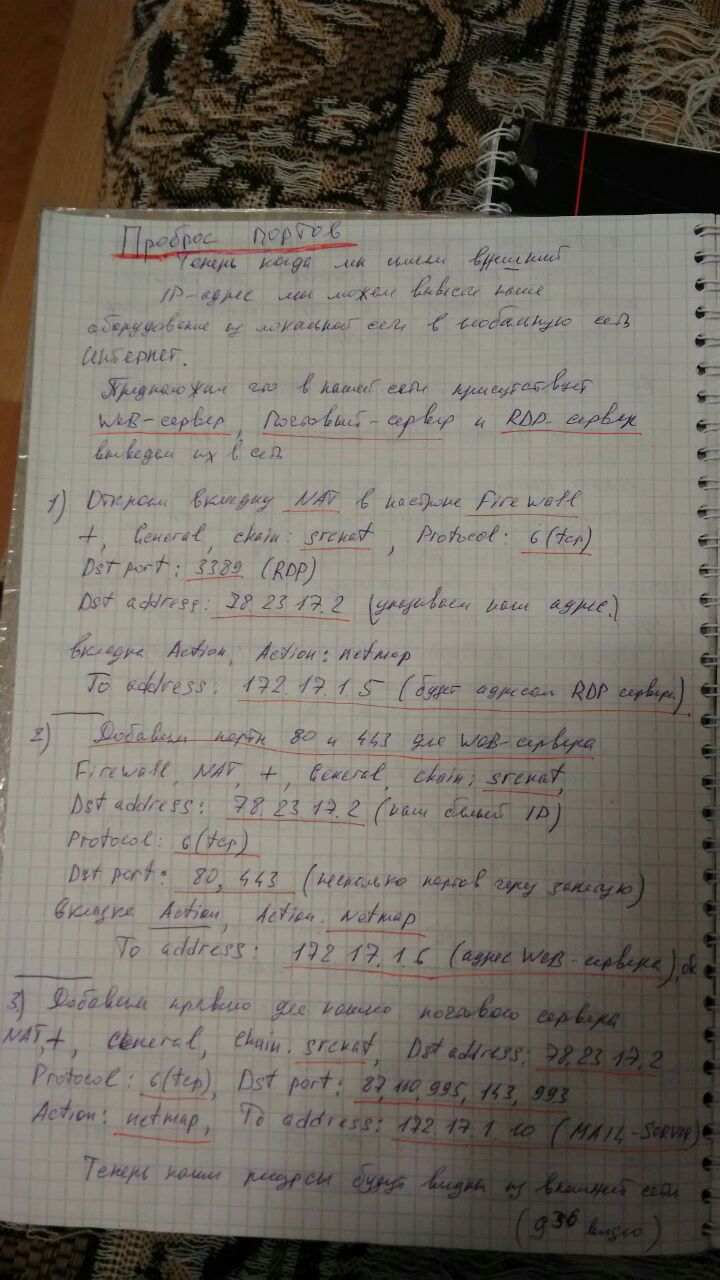 Проброс портов
Теперь когда мы имеем внешний
IP-адрес мы можем вывести наше
оборудование из локальной сети в глобальную сеть
Интернет.
Предположим что в нашей сети присутствует
WEB-сервер, Почтовый-сервер и RDP-сервер
выведем их в сеть
1) Откроем вкладку NAT в настройке Firewall
+, General, chain: srcnat, Protocol: 6(tcp)
Dst port: 3389 (RDP)
Dst address: 78.23.17.2 (указываем наш адрес.)
вкладка Action, Action: netmap
To address: 172.17.1.5 (будет адресом RDP сервера)
2) Добавим порты 80 и 443 для WEB-сервера
Firewall, NAT, +, General, chain: srcnat,
Dst address: 78.23.17.2 (наш белый IP)
Protocol: 6(tcp)
Dst port: 80, 443 (несколько портов через запятую)
вкладка Action, Action: Netmap
To address: 172.17.1.6 (адрес WEB-сервера), ok
3) Добавим правило для нашего почтового сервера
NAT, +, General, Chain: srcnat, Dst address: 78.23.17.2
Protocol: 6(tcp), Dst port: 87, 110, 995, 143, 993
Action: netmap, To address: 172.17.1.10 (MAIL-SERVER)
Теперь наши ресурсы будут видны из внешней сети
(9 36 видео)